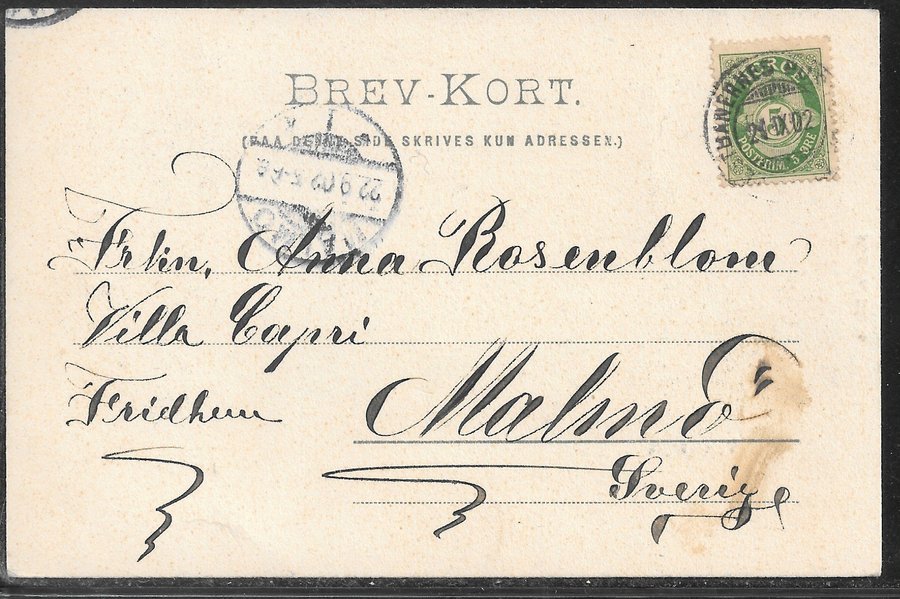 BREV-KORT.
(PAA DENNE SIDE SKRIVES KUN ADRESSEN.)
NORGE
5
POSTFRIM. 5 ØRE
21 IX 02
22.9.02
Frkn. Anna Rosenblom
Villa Capri
Fridhem
Malmö
Sverige